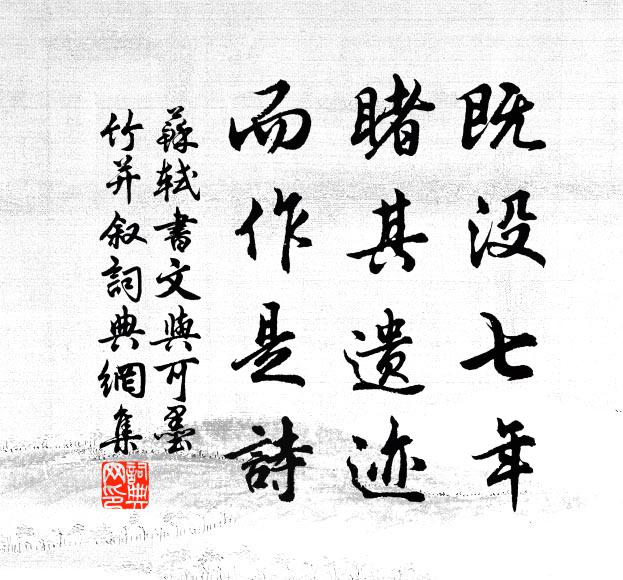 既没七年
睹其遗迹
而作是詩
蘇軾書文與可墨
竹并叙詞典網集
詞典网印